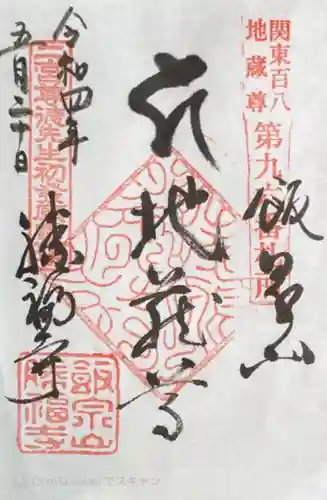 関東百八
地蔵尊
第九
番札所
飯泉山
地蔵尊
令和四年
五月三十日
二宮尊徳先生初発願
勝福寺
飯泉山
勝福寺
CamScannerでスキャン